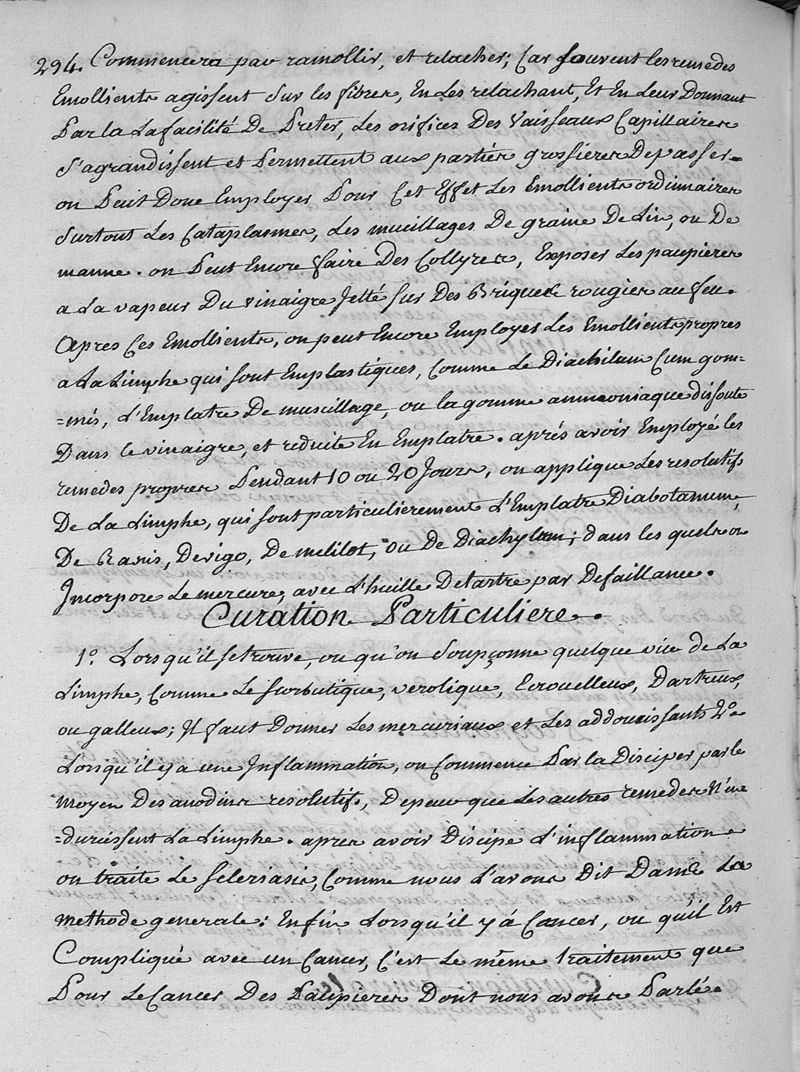 294. Commencera par ramollir, et relacher; Car souvent les remedes
Emollients agissent sur les fibres, En les relachant, Et En Leur Donnant
Par la La facilité De Preter, Les orifices Des Vaisseaux Capillaires
S'agrandissent et Permettent aux parties grossieres De passer.
on Peut Donc Employer Pour Cet Effet Les Emollients ordinnaires
Surtout Les Cataplasmes, Les mucillages De graine De Lin, ou De
manne. on Peut Encore faire Des Collyres, Exposer Les paupieres
a La vapeur Du vinaigre Jetté sur Des Briques rougies au feu.
Apres Ces Emollients, on peut Encore Employer Les Emollients propres
a La Limphe qui sont Emplastiques, Comme Le Diachilum Cum gom-
=mis, L'Emplatre De muscillage, ou la gomme ammoniaque dissoute
Dans le vinaigre, et reduite En Emplatre. aprés avoir Employé les
remedes propres Pendant 10 ou 20 Jours, on applique Les resolutifs
De La Limphe, qui sont particulierement L'Emplatre Diabotanum,
De Ranis, De vigo, De melilot, ou De Diachylum; dans les quels on
Incorpore Le mercure, avec L'huille De tartre par Defaillance.
Curation Particuliere.
1.º Lorsqu'il se trouve, ou qu'on Soupçonne quelque vice de La
Limphe, Comme Le scorbutique, verolique, Ecrouelleux, Dartreux,
ou galleux; Il faut Donner Les mercuriaux et Les addoucissants 2.º
Lorsqu'il y a une Inflammation, on Commence Par la Disciper par le
moyen Des anodins resolutifs, De peur que Les autres remedes N'en
=durcissent La Limphe. apres avoir Discipé L'inflammation
on traite Le sclersiasis, Comme nous L'avons Dit Dans La
methode generale: Enfin Lorsqu'il y á Cancer, ou qu'il Est
Compliqué avec un Cancer, C'est Le même traitement que
Pour Le Cancer Des Paupieres Dont nous avons Parlé.